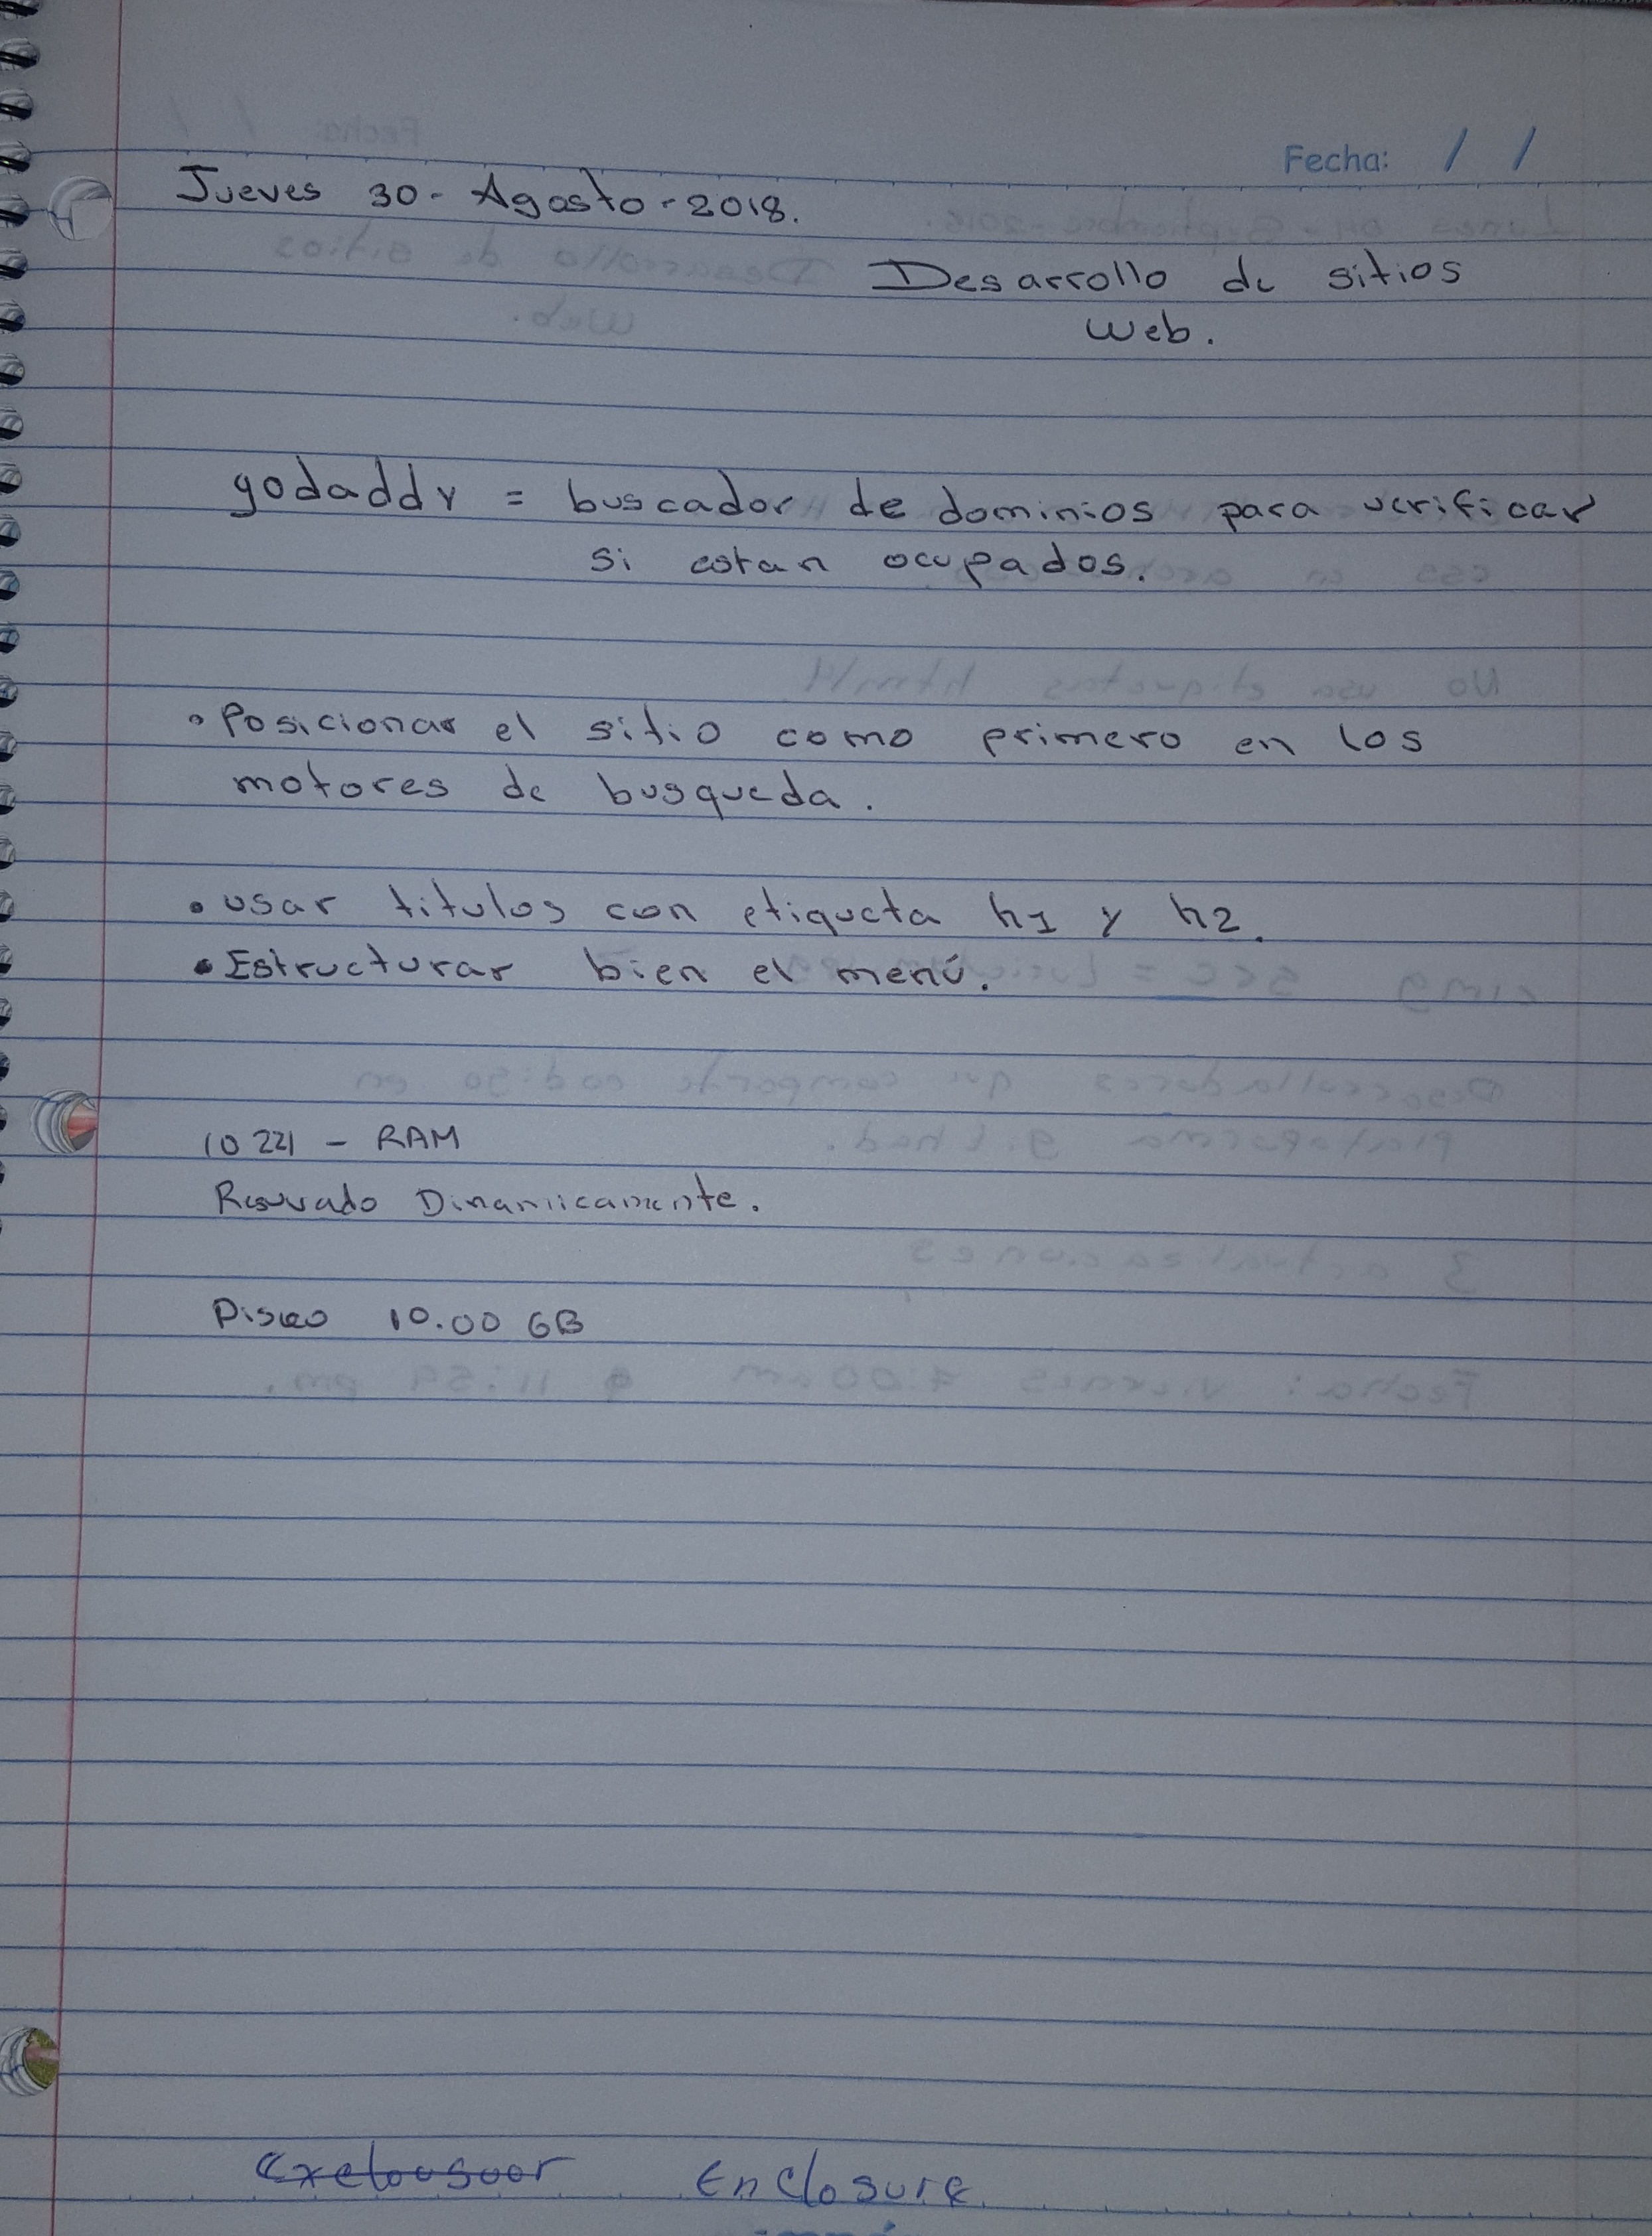 Fecha: / /
Jueves 30- Agosto-2018.
Desarrollo de sitios
Web.
godaddy = buscador de dominios para verificar
si estan ocupados.
• Posicionar el sitio como primero en los
motores de busqueda.
• usar titulos con etiqueta h1 y h2.
• Estructurar bien el menú.
- RAM
Reservado Dinamicamente.
Disco 10.00 GB
Enclosure